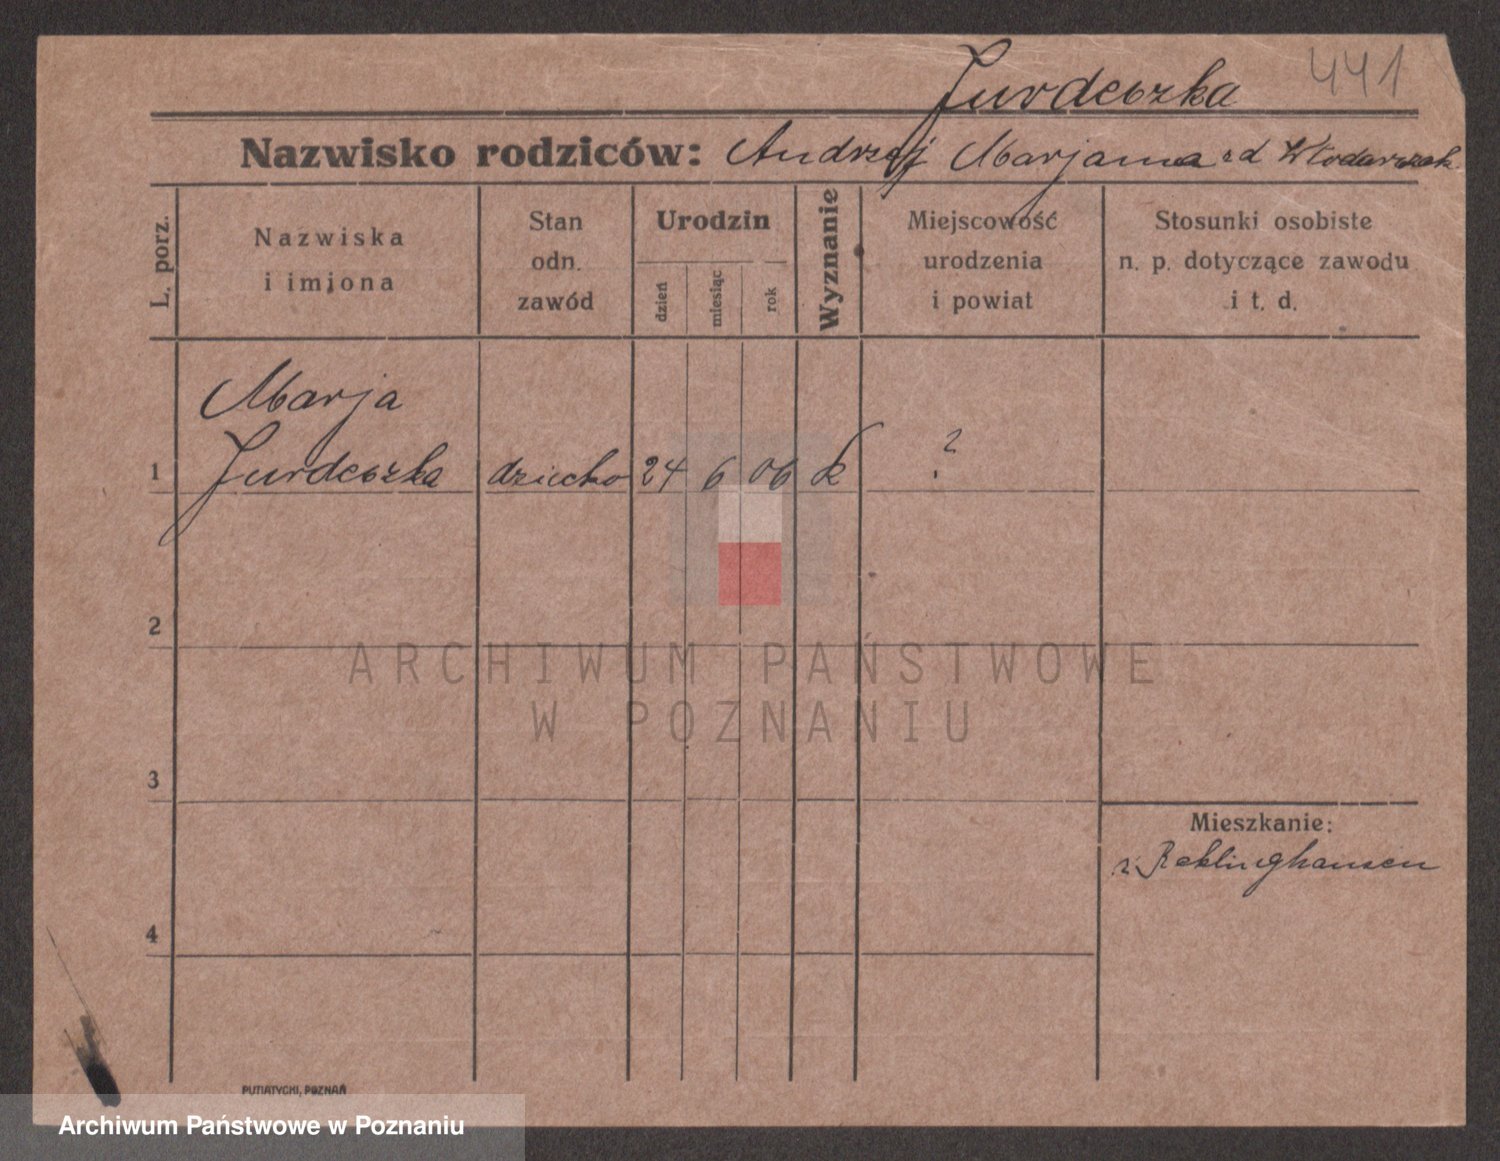 441
Jurdeczka
Nazwisko rodziców: Andrzej Marjanna z d Włodarczak
L. porz.
Nazwiska
i imiona
Stan
odn.
zawód
Urodzin
dzień
miesiąc
rok
Wyznanie
Miejscowość
urodzenia
i powiat
Stosunki osobiste
n. p. dotyczące zawodu
i t. d.
Marja
1 Jurdeczka dziecko 24 6 06 k ?
2
ARCHIWUM PAŃSTWOWE
W POZNANIU
3
Mieszkanie:
Reklinghausen
4
PUTIATYCKI, POZNAŃ
Archiwum Państwowe w Poznaniu